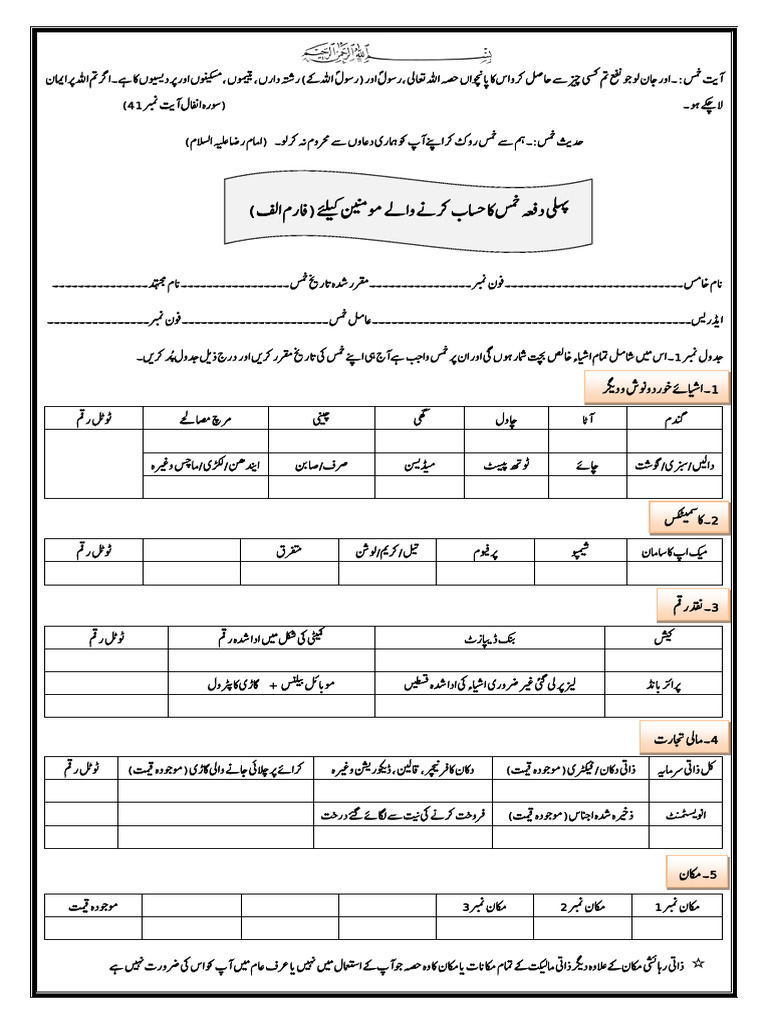 بسم اللہ الرحمن الرحیم
آیت خمس:۔ اور جان لو جو نفع تم کسی چیز سے حاصل کرو اس کا پانچواں حصہ اللہ تعالی، رسولؐ اور (رسولؐ اللہ کے) رشتہ داروں، یتیموں، مسکینوں اور پردیسیوں کا ہے۔ اگر تم اللہ پر ایمان
لا چکے ہو۔ (سورہ انفال آیت نمبر 41)
حدیث خمس:۔ ہم سے خمس روک کر اپنے آپ کو ہماری دعاوں سے محروم نہ کر لو۔ (امام رضا علیہ السلام)
پہلی دفعہ خمس کا حساب کرنے والے مومنین کیلئے (فارم الف)
نام خامس---------------------------فون نمبر----------------مقرر شدہ تاریخ خمس-----------------نام مجتہد---------------
ایڈریس--------------------------------------------------عامل خمس-----------------------فون نمبر----------------
جدول نمبر 1۔ اس میں شامل تمام اشیاء خالص بچت شمار ہوں گی اور ان پر خمس واجب ہے آج ہی اپنے خمس کی تاریخ مقرر کریں اور درج ذیل جدول پُر کریں۔
1۔ اشیائے خوردونوش و دیگر
گندم آٹا چاول گھی چینی مرچ مصالحے ٹوٹل رقم
دالیں/سبزی/گوشت چائے ٹوتھ پیسٹ میڈیسن صرف/صابن ایندھن/لکڑی/ماچس وغیرہ
2۔ کاسمیٹکس
میک اپ کا سامان شیمپو پرفیوم تیل/کریم/لوشن متفرق ٹوٹل رقم
3۔ نقد رقم
کیش بنک ڈیپازٹ کمیٹی کی شکل میں ادا شدہ رقم ٹوٹل رقم
پرائز بانڈ لیز پر لی گئی غیر ضروری اشیاء کی ادا شدہ قسطیں موبائل بیلنس + گاڑی کا پٹرول
4۔ مالی تجارت
کل ذاتی سرمایہ ذاتی دکان/فیکٹری (موجودہ قیمت) دکان کا فرنیچر، قالین، ڈیکوریشن وغیرہ کرائے پر چلائی جانے والی گاڑی (موجودہ قیمت) ٹوٹل رقم
انویسٹمنٹ ذخیرہ شدہ اجناس (موجودہ قیمت) فروخت کرنے کی نیت سے لگائے گئے درخت
5۔ مکان
مکان نمبر 1 مکان نمبر 2 مکان نمبر 3 موجودہ قیمت
☆ ذاتی رہائشی مکان کے علاوہ دیگر ذاتی مالیکت کے تمام مکانات یا مکان کا وہ حصہ جو آپ کے استعمال میں نہیں یا عرف عام میں آپ کو اس کی ضرورت نہیں ہے